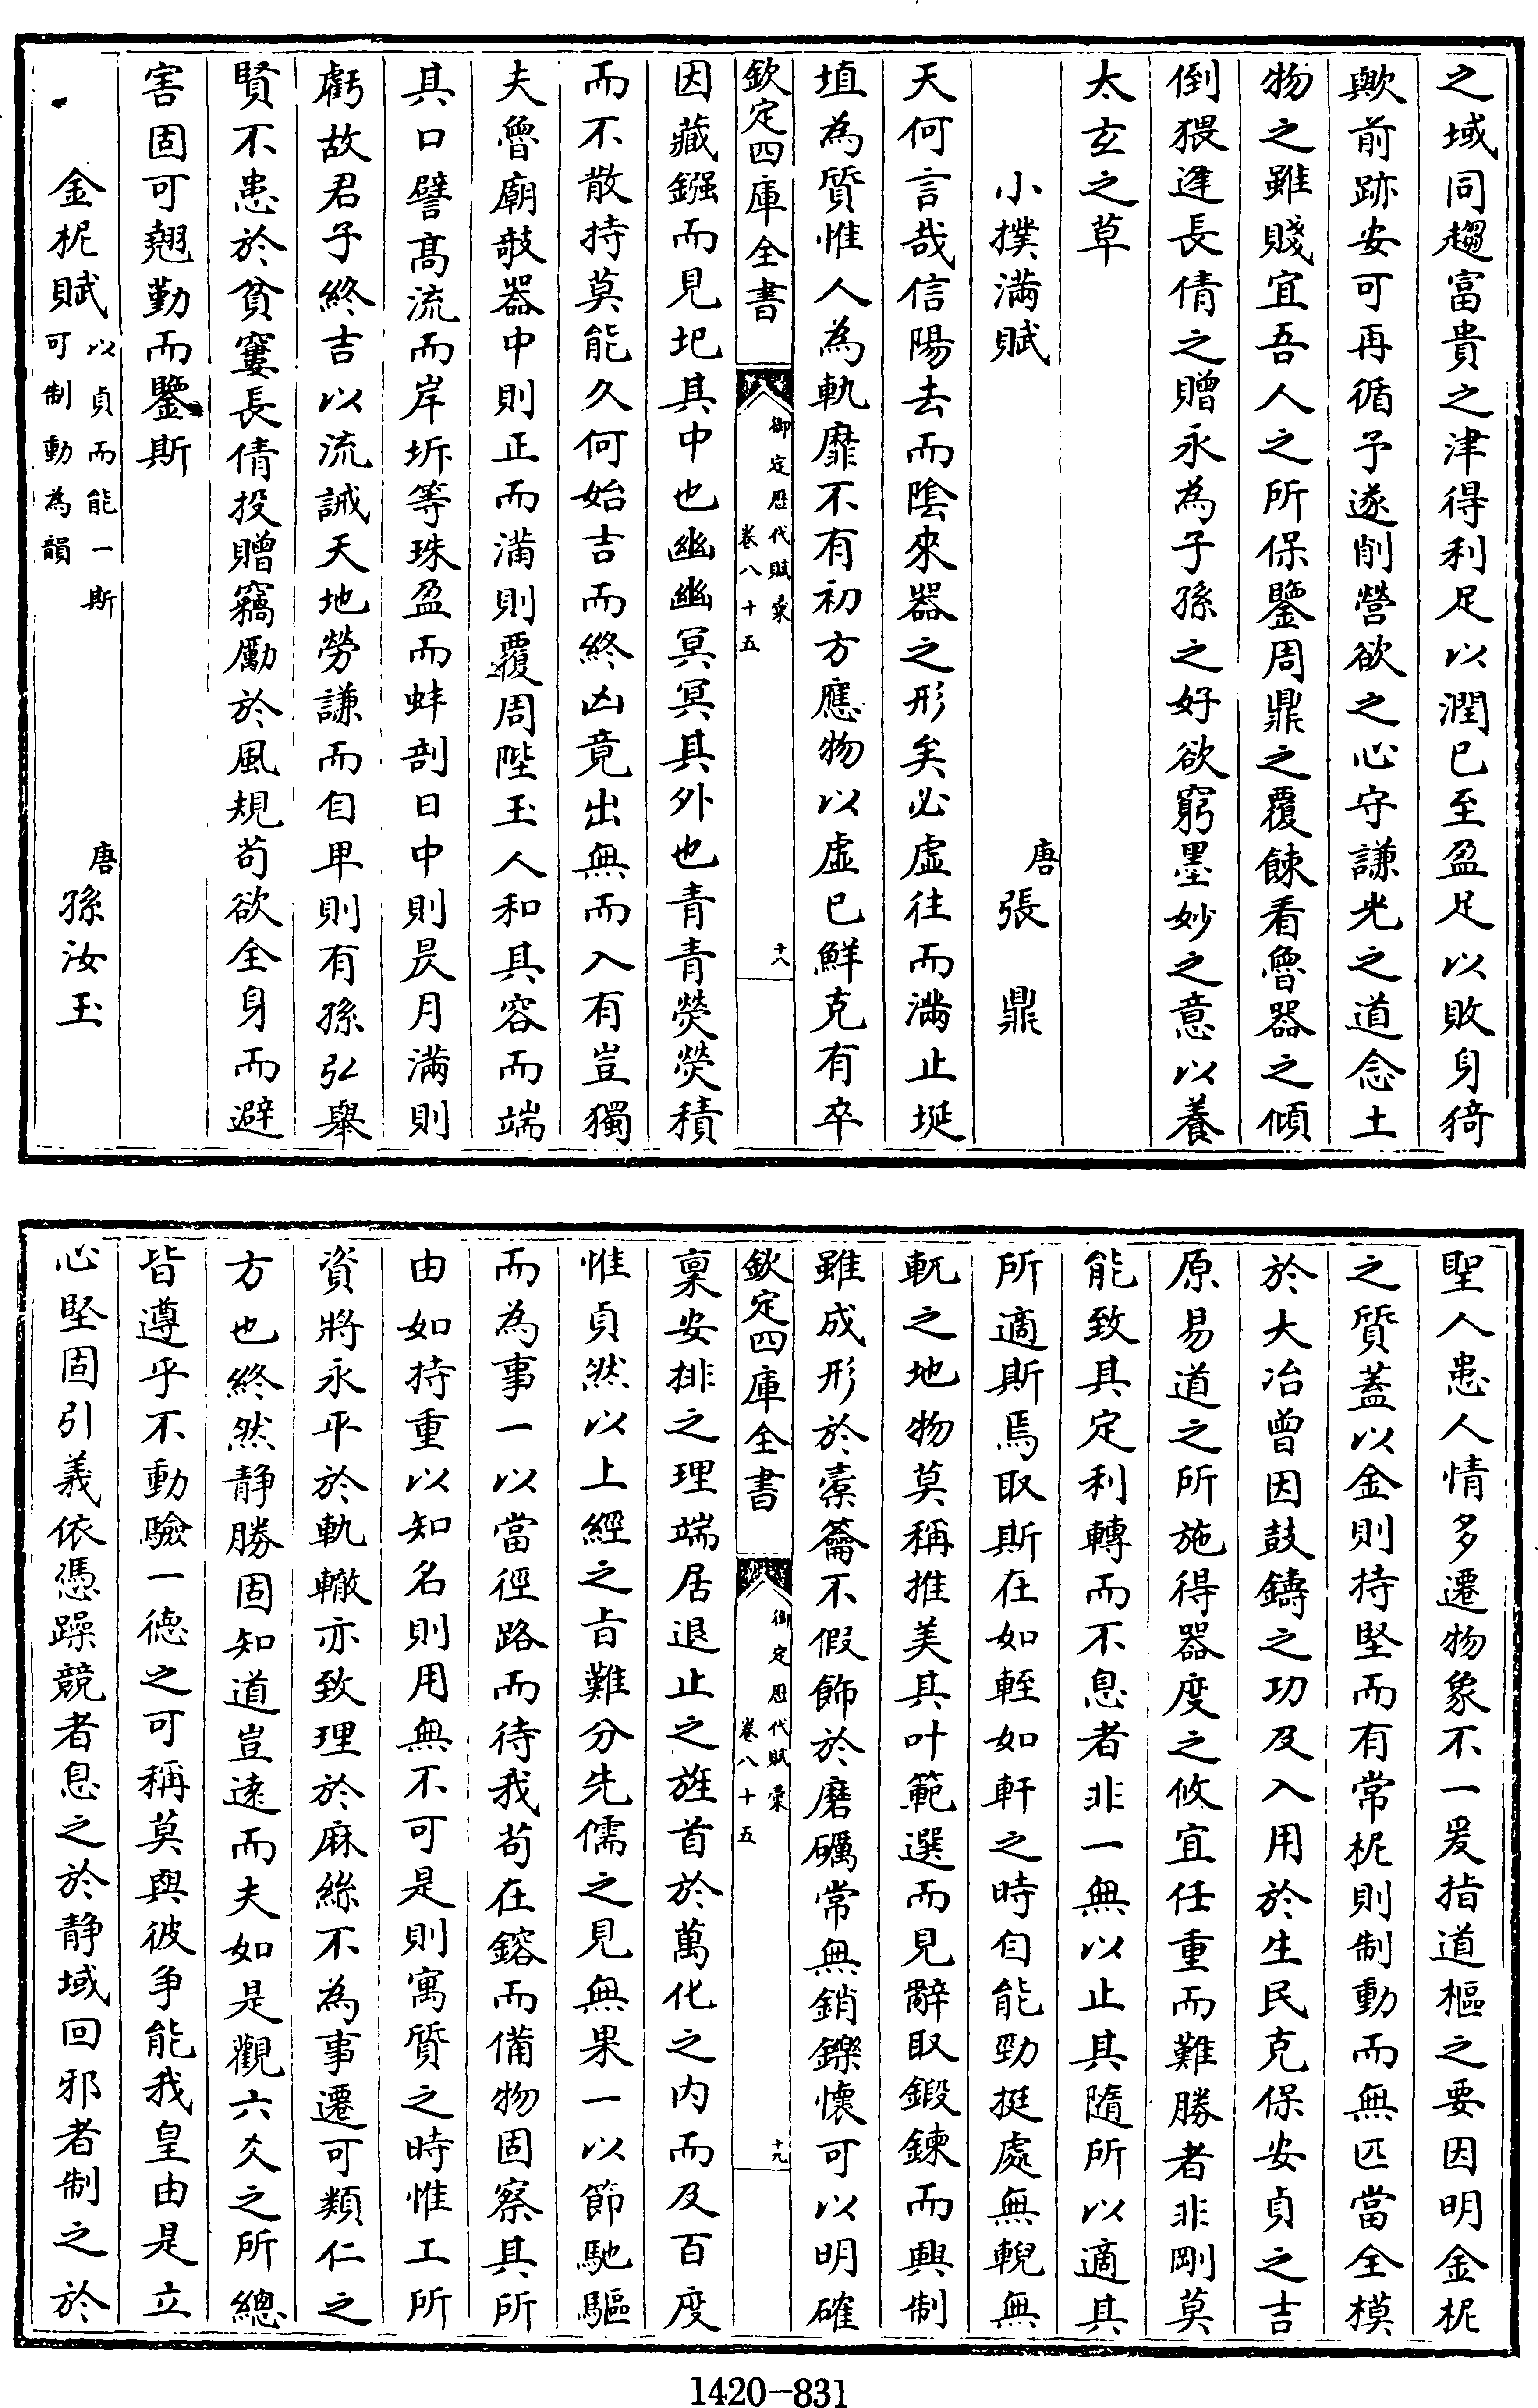 之域同趨富貴之津得利足以潤已至盈足以敗身猗
歟前跡安可再循予遂削營欲之心守謙光之道念土
物之雖賤宜吾人之所保鑒周鼎之覆餗看魯器之傾
倒猥逢長倩之贈永為子孫之好欲窮墨妙之意以養
太玄之草
小撲滿賦
唐張鼎
天何言哉信陽去而陰來器之形矣必虛往而滿止埏
埴為質惟人為軌靡不有初方應物以虛已鮮克有卒
欽定四庫全書
御定歷代賦彙
卷八十五
十八
因藏鏹而見圯其中也幽幽冥冥其外也青青熒熒積
而不散持莫能久何始吉而終凶竟出無而入有豈獨
夫魯廟攲器中則正而滿則覆周陛玉人和其容而端
其口譬髙流而岸坼等珠盈而蚌剖日中則昃月滿則
虧故君子終吉以流誡天地勞謙而自卑則有孫弘舉
賢不患於貧窶長倩投贈竊勵於風規苟欲全身而避
害固可翹勤而鑒斯
金柅賦以貞而能一斯可制動為韻
唐孫汝玉
聖人患人情多遷物象不一爰指道樞之要因明金柅
之質蓋以金則持堅而有常柅則制動而無匹當全模
於大冶曾因鼓鑄之功及入用於生民克保安貞之吉
原易道之所施得器度之攸宜任重而難勝者非剛莫
能致其定利轉而不息者非一無以止其隨所以適其
所適斯焉取斯在如輊如軒之時自能勁挺處無輗無
軏之地物莫稱推美其叶範選而見辭取鍛鍊而興制
雖成形於橐籥不假飾於磨礪常無銷鑠懷可以明確
欽定四庫全書
御定歷代賦彙
卷八十五
十九
稟安排之理端居退止之旌首於萬化之内而及百度
惟貞然以上經之㫖難分先儒之見無果一以節馳驅
而為事一以當徑路而待我苟在鎔而備物固察其所
由如持重以知名則用無不可是則寓質之時惟工所
資將永平於軌轍亦致理於麻絲不為事遷可類仁之
方也終然靜勝固知道豈逺而夫如是觀六爻之所總
皆遵乎不動驗一德之可稱莫與彼爭能我皇由是立
心堅固引義依憑躁競者息之於靜域回邪者制之於
1420-831